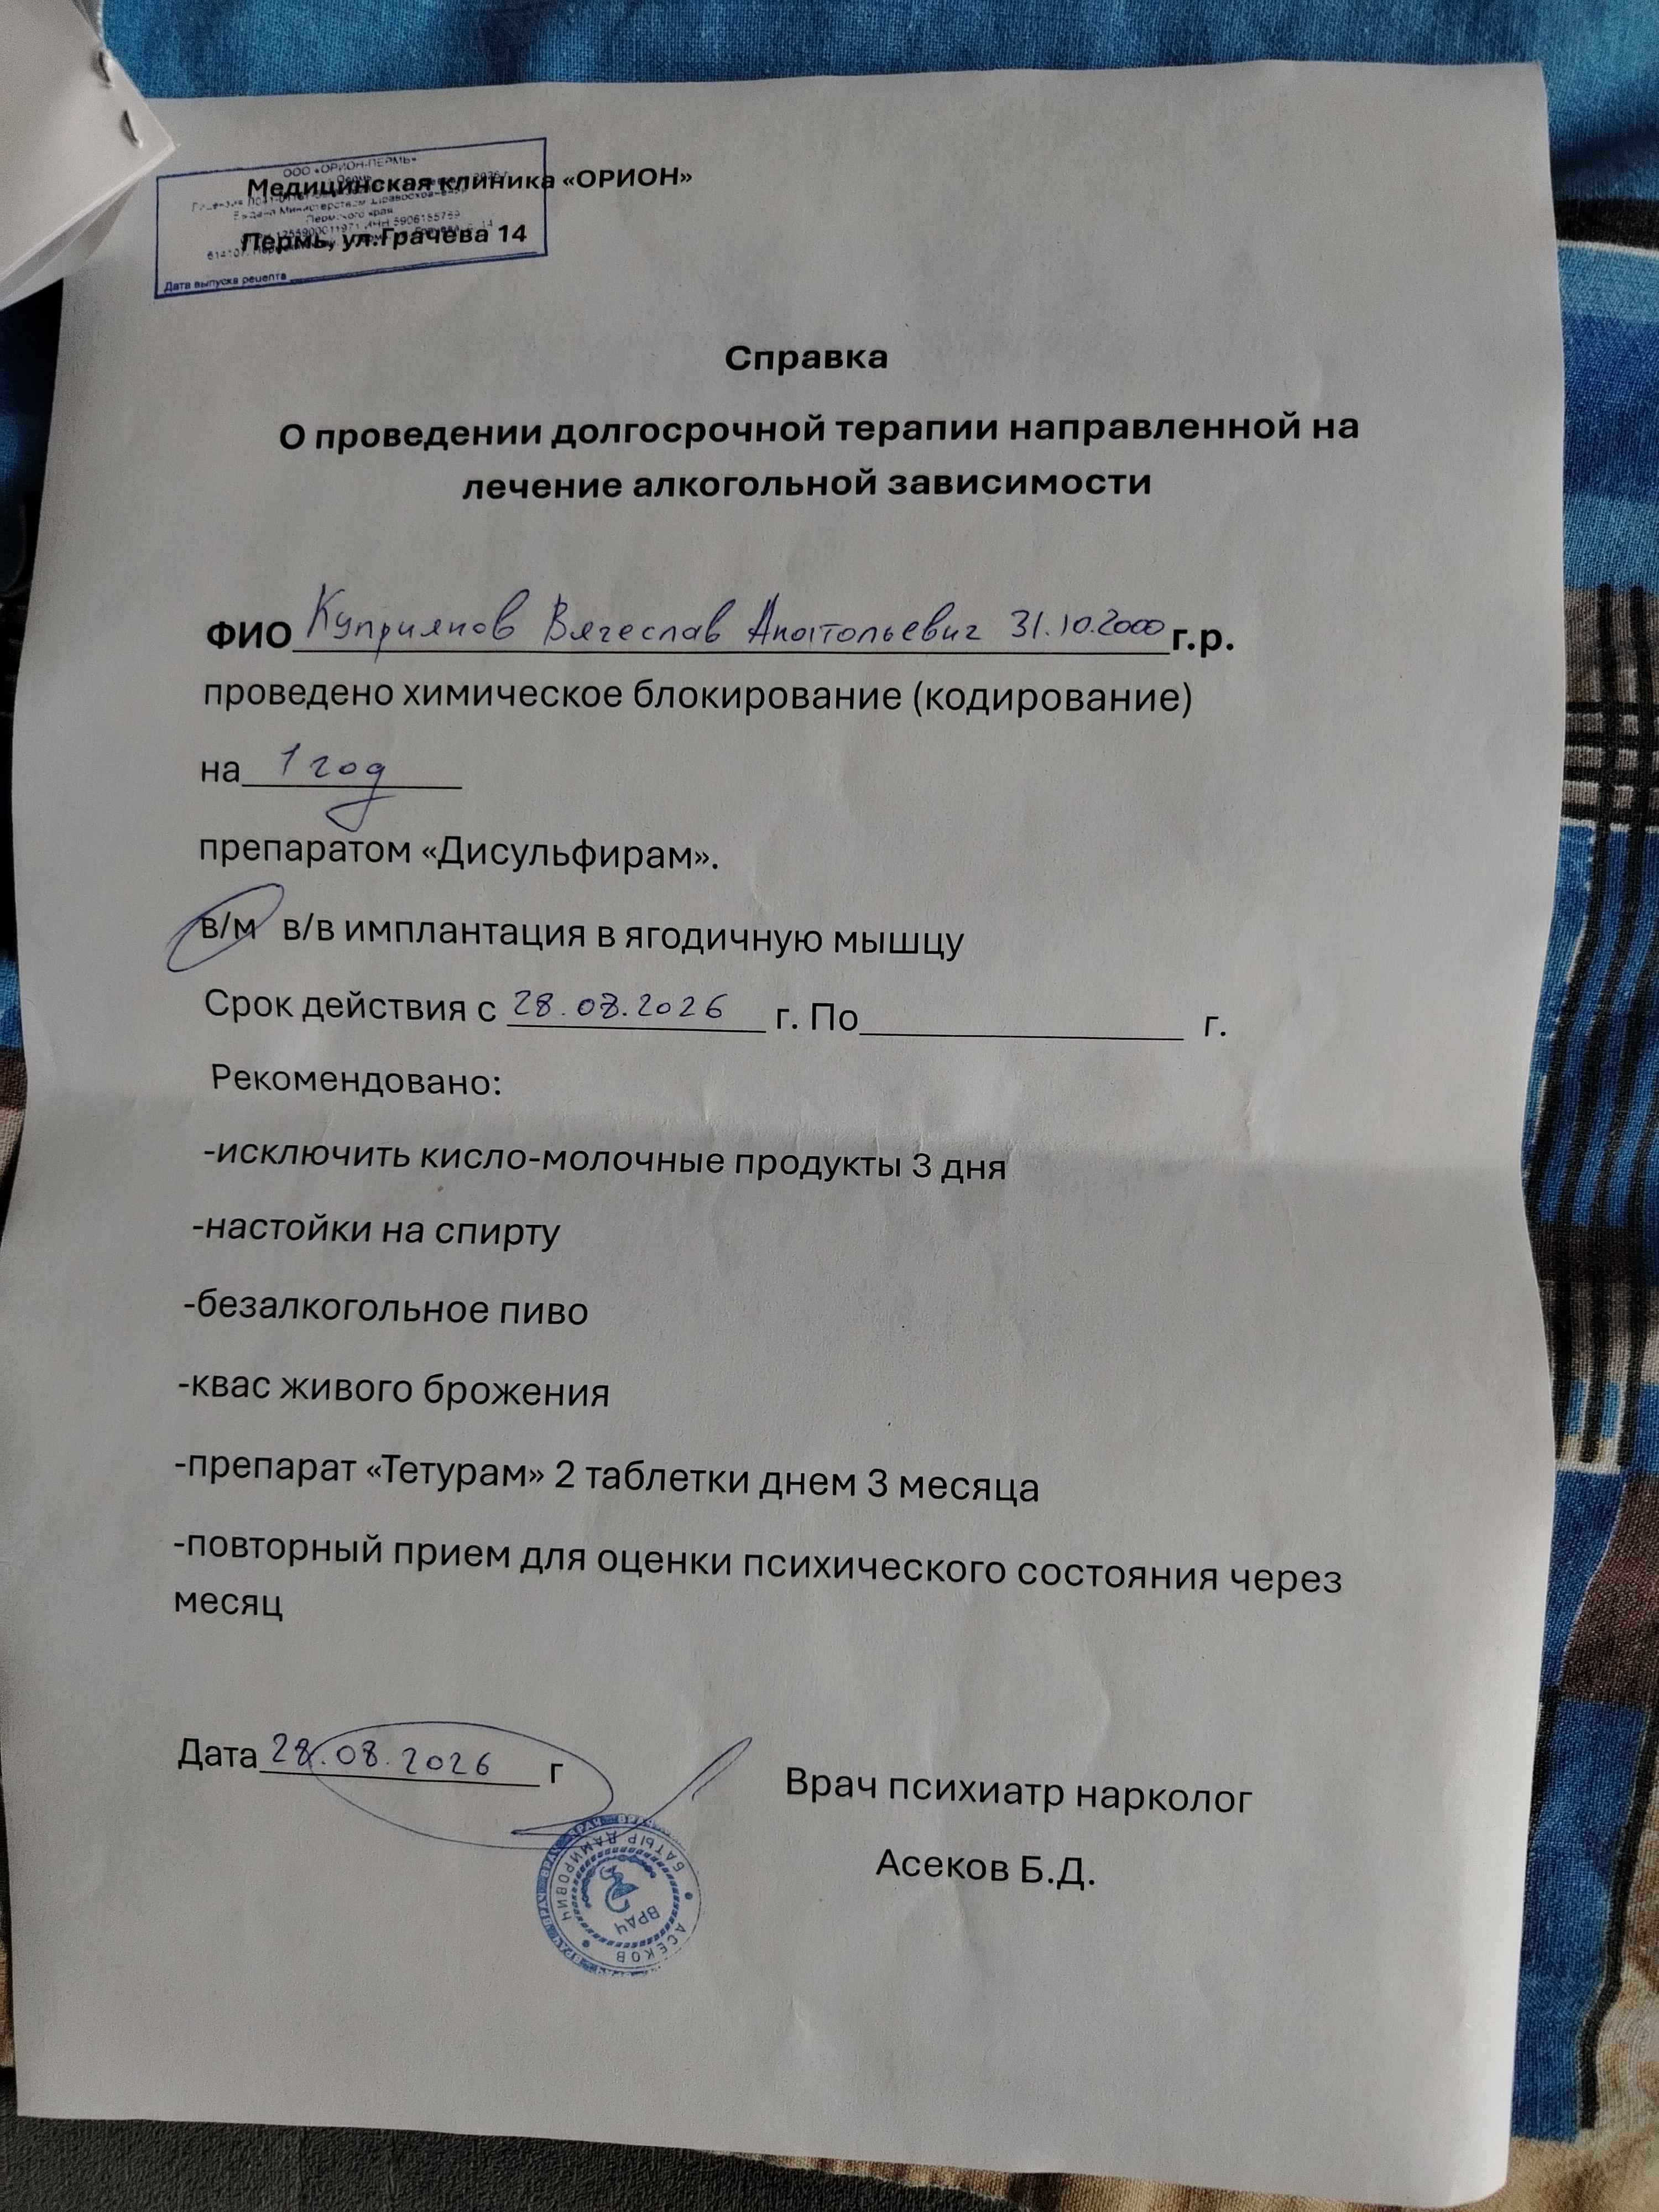 ООО «ОРИОН-ПЕРМЬ»
Медицинская клиника «ОРИОН»
Пермского края
Пермь, ул.Грачева 14
Дата выпуска рецепта
Справка
О проведении долгосрочной терапии направленной на
лечение алкогольной зависимости
ФИО Куприянов Вячеслав Анатольевич 31.10.2000 г.р.
проведено химическое блокирование (кодирование)
на 1 год
препаратом «Дисульфирам».
в/м в/в имплантация в ягодичную мышцу
Срок действия с 28.08.2026 г. По г.
Рекомендовано:
-исключить кисло-молочные продукты 3 дня
-настойки на спирту
-безалкогольное пиво
-квас живого брожения
-препарат «Тетурам» 2 таблетки днем 3 месяца
-повторный прием для оценки психического состояния через
месяц
Дата 28.08.2026 г
Врач психиатр нарколог
Асеков Б.Д.
АСЕКОВ БАТЫР ДАМИРОВИЧ
ВРАЧ